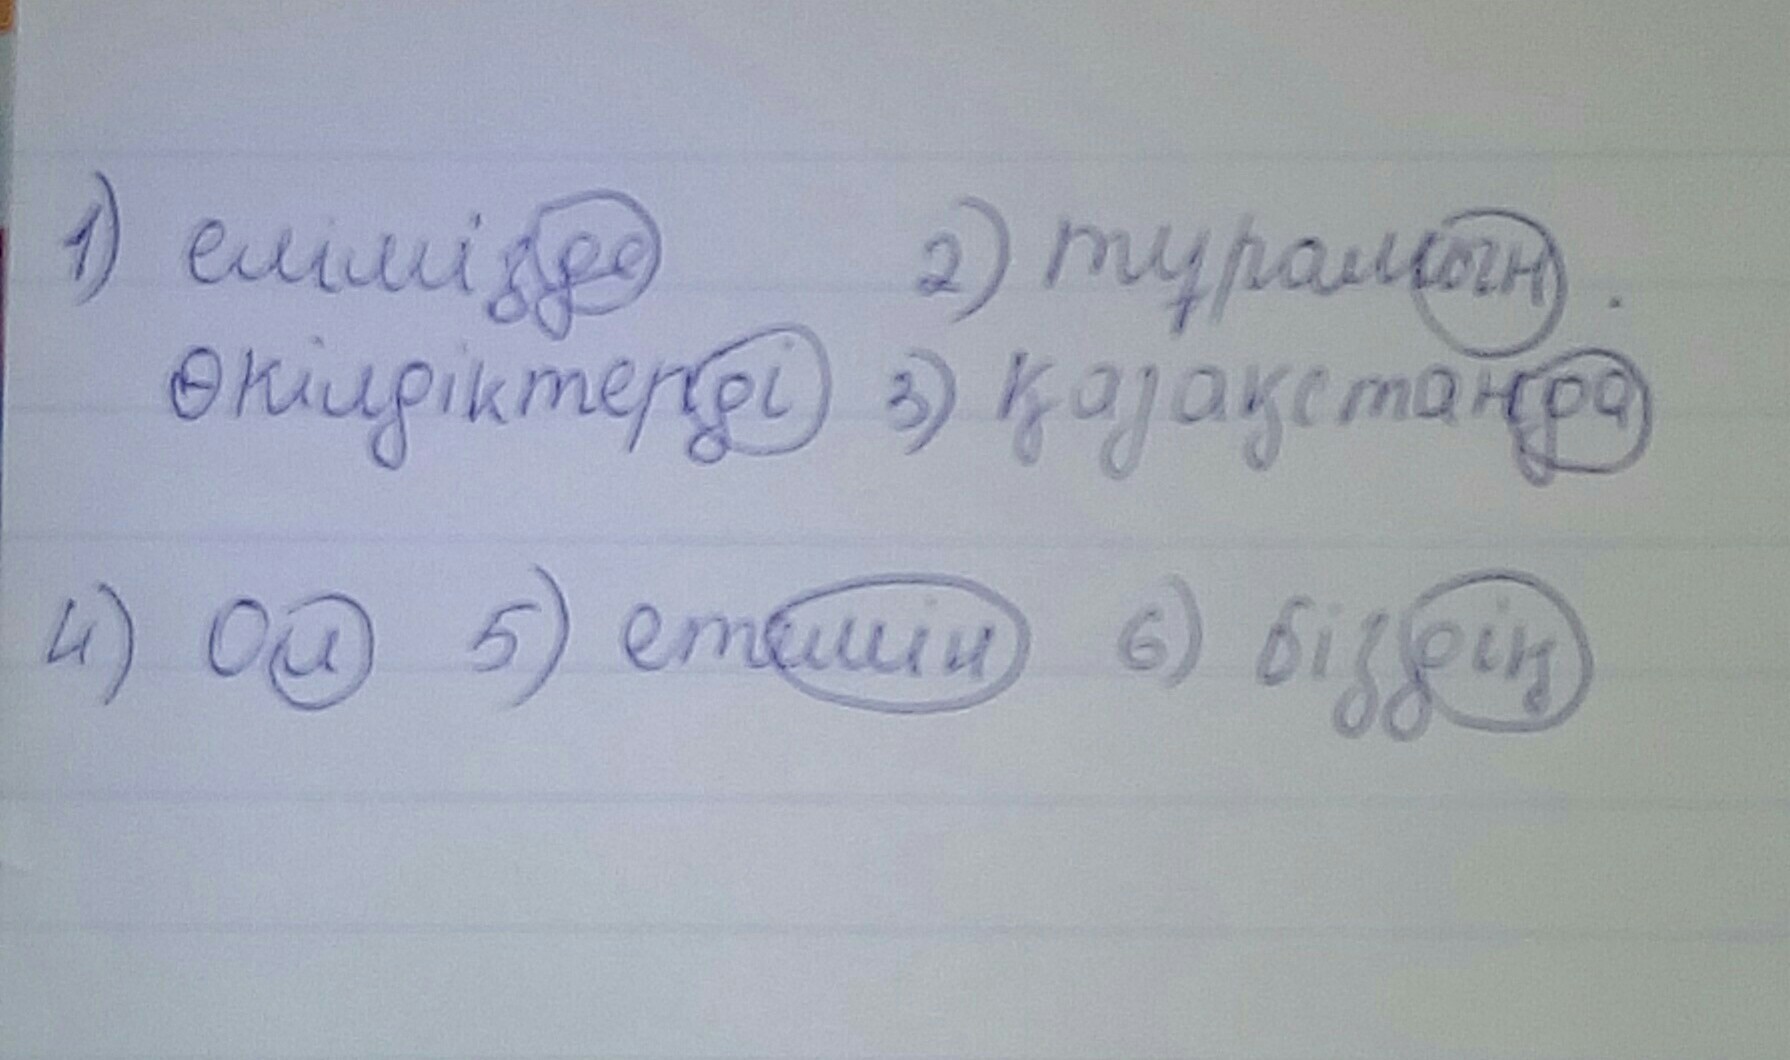 1) елімізде 2) тұрамын.
өкілдіктерді 3) Қазақстанда
4) Ол 5) етемін 6) біздің